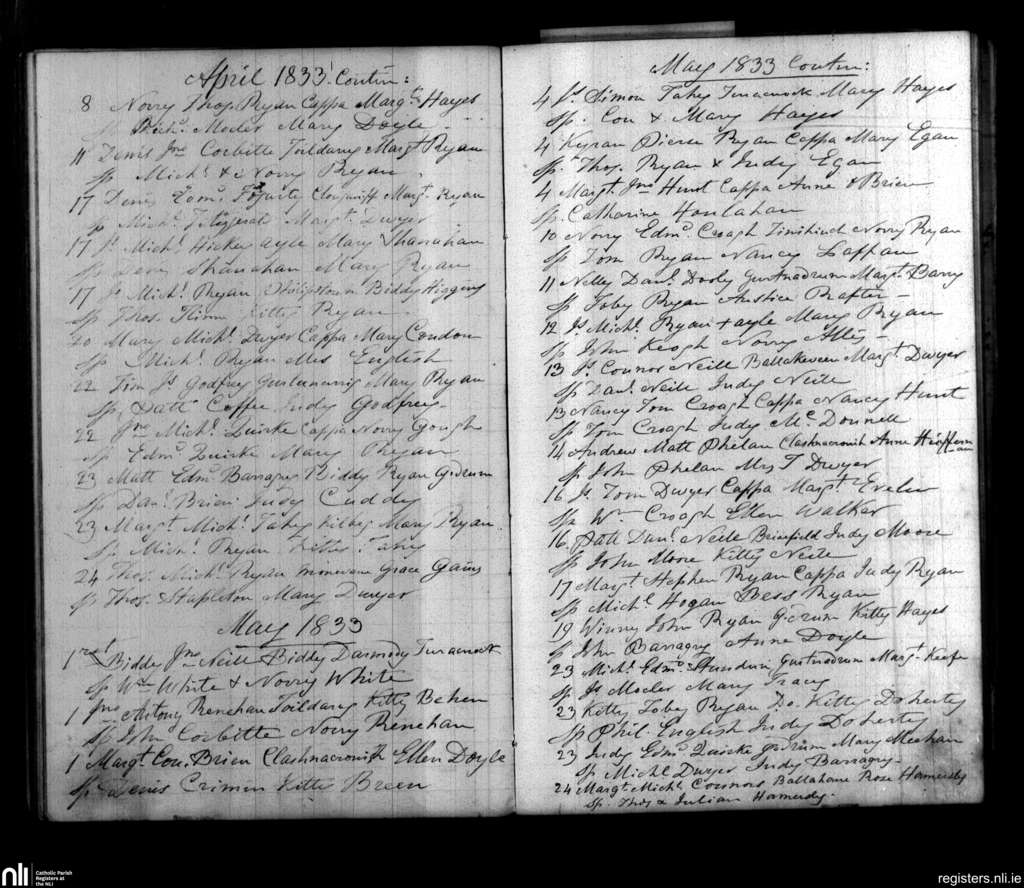 April 1833 Contin:
8 Norry Thos. Ryan Cappa Margt. Hayes
Sp Richd. Mocler Mary Doyle
11 Denis Jno. Corbitte Toildarag Margt Ryan
Sp Michl & Norry Ryan
17 Denis Edmd. Margt. Ryan
Sp Michl. Fitzgerald Margt. Dwyer
17 Js. Michl. Hickey ayle Mary Shanahan
Sp Shanahan Mary Ryan
17 Js Michl. Ryan Philipstown Biddy Higgins
Sp Thos. Kitty Ryan
20 Mary Michl. Dwyer Cappa Mary Condon
Sp Michl. Ryan Mrs English
22 Tim Js. Godfrey Mary Ryan
Sp Patt Coffee Judy Godfrey
22 Jno. Michl. Quirke Cappa Norry Gough
Sp Edmd Quirke Mary Ryan
23 Matt Edmd Barragry Biddy Ryan G:drum
Sp Danl. Brien Judy Cuddy
23 Margt. Michl. Fahy Kilbeg Mary Ryan
Sp Michl. Ryan Kitty Fahy
24 Thos. Michl. Ryan Grace
Sp Thos. Stapleton Mary Dwyer
May 1833
1rst Biddy Jno. Neill Biddy Darmody Turacnock
Sp Wm White & Norry White
1 Jno. Antony Renehan Toildarag Kitty Behen
Sp John Corbitte Norry Renehan
1 Margt. Con. Brien Clashnacronish Ellen Doyle
Sp Denis Crimin Kitty Breen
May 1833 Contin:
4 Js. Simon Fahy Turacnock Mary Hayes
Sp. Con & Mary Hayes
4 Kyran Pierce Ryan Cappa Mary Egan
Sp. Thos. Ryan & Judy Egan
4 Margt. Jno Hunt Cappa Anne OBrien
Sp. Catharine Houlahan
10 Norry Edmd. Croagh Norry Ryan
Sp Tom Ryan Nancy Lappan
11 Nelly Danl. Dooly Gurtnadrum Margt. Barry
Sp Toby Ryan Anstice Rafter
12 Js. Michl. Ryan ayle Mary Ryan
Sp John Keogh Norry
13 Js. Connor Neill Ballakeveen Margt. Dwyer
Sp Danl. Neile Judy Neile
13 Nancy Tom Croagh Cappa Nancy Hunt
Sp Tom Croagh Judy Mc.Donnell
14 Andrew Matt Phelan Clashnacronish Anne Heffernan
Sp John Phelan Mrs T Dwyer
16 Js. Tom Dwyer Cappa Margt.
Sp Wm Croagh Ellen Walker
16 Patt Danl. Neile Brienfield Judy Moore
Sp John Moore Kitty Neile
17 Margt Stephen Ryan Cappa Judy Ryan
Sp Michl Hogan Bess Ryan
19 Winny John Ryan G:drum Kitty Hayes
Sp John Barragry Anne Doyle
23 Michl. Edmd. Gurtnadrum Margt. Keefe
Sp Js Mocler Mary Tracy
23 Kitty Toby Ryan Do. Kitty Doherty
Sp Phil English Judy Doherty
23 Judy Edmd. Quirke G:drum Mary Meehan
Sp Michl Dwyer Judy Barragry
24 Margt. Michl. Connors Ballahane Rose Hamersly
Sp Thos & Julian Hamersly
nli Catholic Parish
Registers at
the NLI
registers.nli.ie